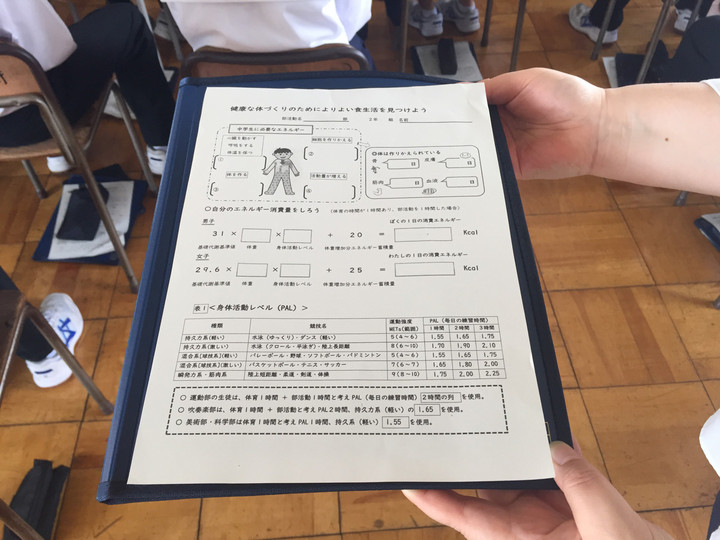 健康な体づくりのためによりよい食生活を見つけよう
部活動名 部 2年 組 名前
中学生に必要なエネルギー
心臓を動かす
呼吸をする
体温を保つ
細胞を作りかえる
②
①
体を作る
③
活動量が増える
④
◎体は作りかえられている
骨 日 皮膚 日
筋肉 日 血液 日
○自分のエネルギー消費量をしろう (体育の時間が1時間あり、部活動を1時間した場合)
男子 ぼくの1日の消費エネルギー
31 × × + 20 = Kcal
基礎代謝基準値 体重 身体活動レベル 体重増加分エネルギー蓄積量
女子 わたしの1日の消費エネルギー
29.6 × × + 25 = Kcal
基礎代謝基準値 体重 身体活動レベル 体重増加分エネルギー蓄積量
表1<身体活動レベル(PAL)>
種類 競技名 運動強度 METs(範囲) PAL(毎日の練習時間)
1時間 2時間 3時間
持久力系(軽い) 水泳(ゆっくり)・ダンス(軽い) 5(4~6) 1.55 1.65 1.75
持久力系(激しい) 水泳(クロール・平泳ぎ)・陸上長距離 8(6~10) 1.70 1.90 2.10
混合系(球技系)(軽い) バレーボール・野球・ソフトボール・バドミントン 5(4~6) 1.55 1.65 1.75
混合系(球技系)(激しい) バスケットボール・テニス・サッカー 7(6~7) 1.65 1.80 2.00
瞬発力系・筋肉系 陸上短距離・柔道・剣道・体操 9(8~10) 1.75 2.00 2.25
○ 運動部の生徒は、体育1時間 + 部活動1時間と考えPAL(毎日の練習時間)2時間の列を使用。
○ 吹奏楽部は、体育1時間 + 部活動と考えPAL2時間、持久力系(軽い)の1.65を使用。
○ 美術部・科学部は体育1時間と考えPAL1時間、持久系(軽い)1.55を使用。